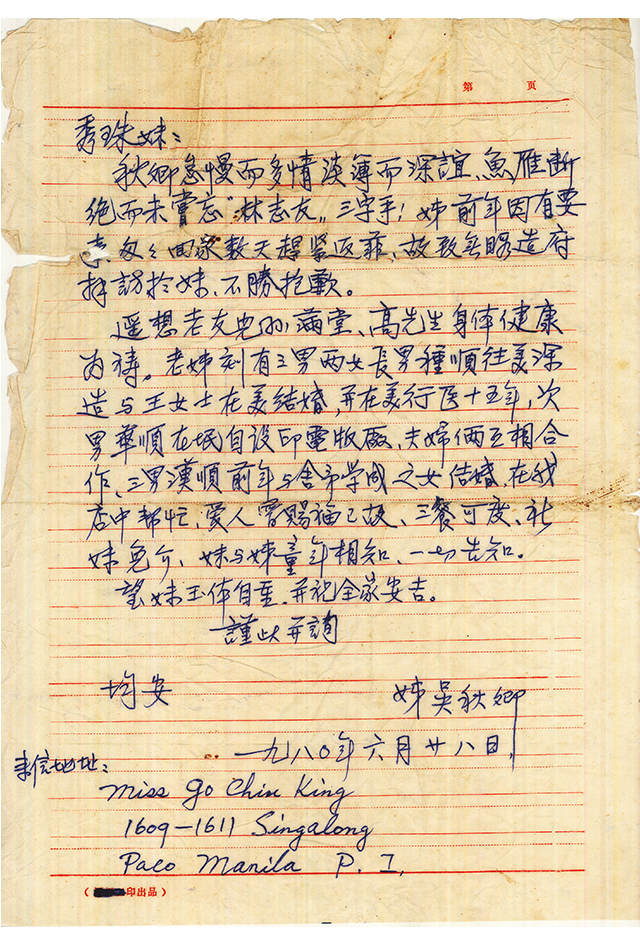 第 页
秀珠妹：
秋卿怠慢而多情淡薄而深誼、魚雁断
绝而未嘗忘“林志友”三字乎！姊前年因有要
事匆々回家数天趕緊返菲、故致無暇造府
拜訪於妹、不勝抱歉。
遥想老友兒孙满堂、高先生身体健康
为祷。老姊刻有三男两女長男種順往美深
造与王女士在美结婚，并在美行医十五年，次
男華順在岷自设印電版廠、夫婦俩互相合
作、三男漢順前年与舍予学成之女结婚、在我
店中帮忙、爱人曾赐福已故、三餐可度、祈
妹免介、妹与姊童年相知、一切告知。
望妹玉体自重、并祝全家安吉。
謹此并詢
均安
姊吴秋卿
一九八〇年六月廿八日
来信地址：
Miss Go Chiu King
1609-1611 Singalong
Paco Manila P. I.
印出品）